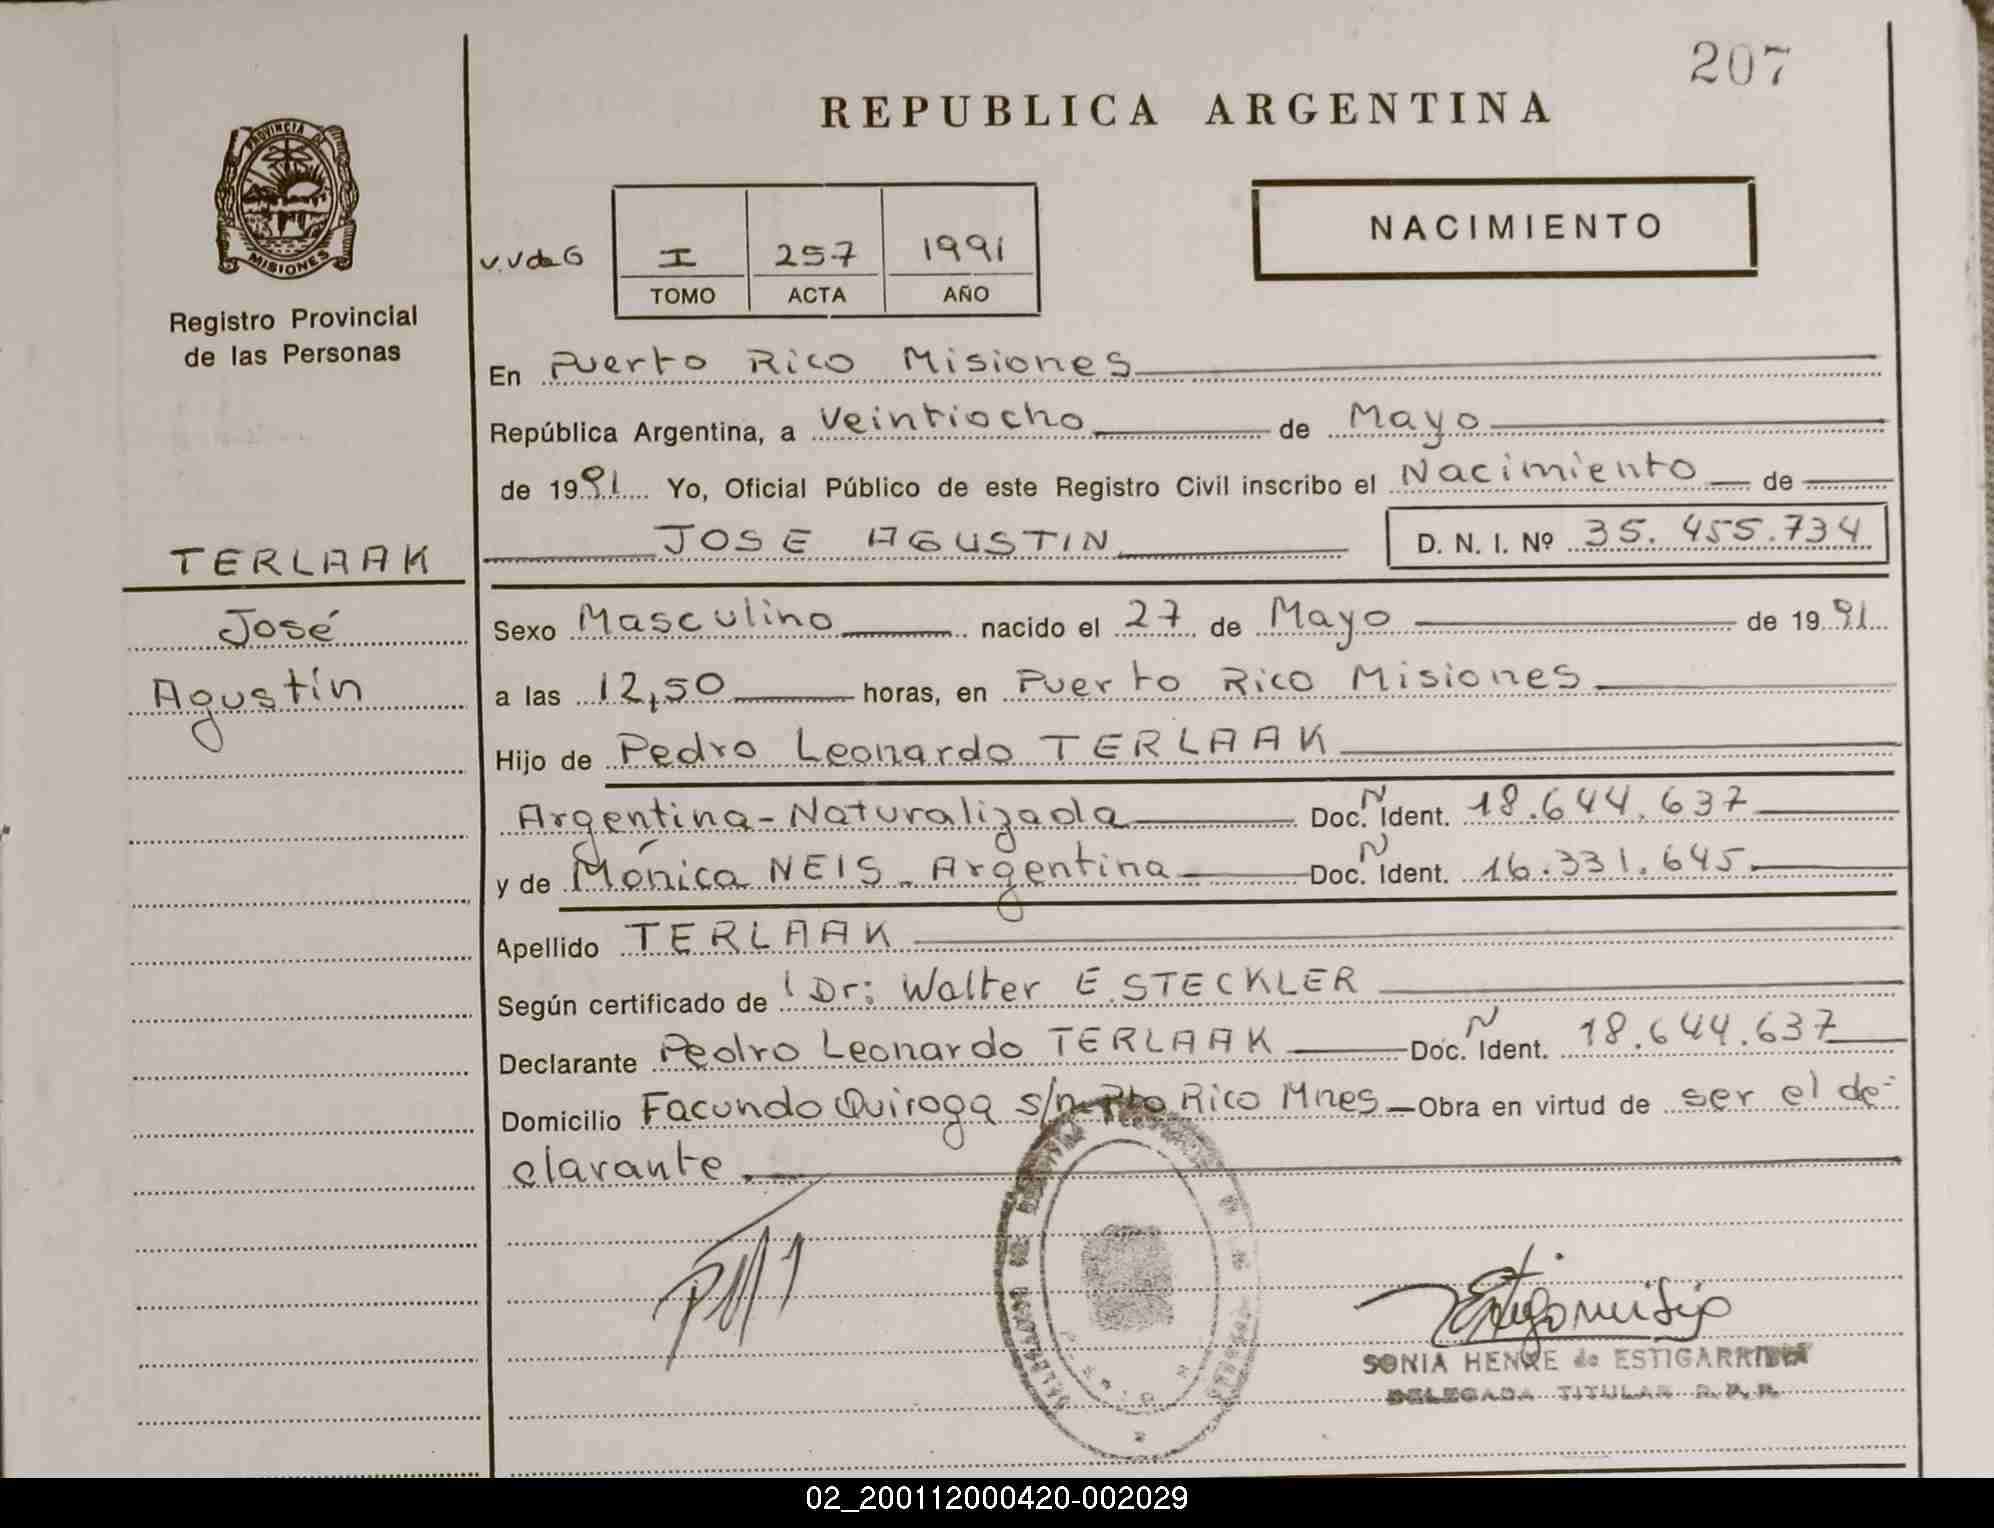 207
REPUBLICA ARGENTINA
PROVINCIA DE
MISIONES
Registro Provincial
de las Personas
NACIMIENTO
V.V de G
I 257 1991
TOMO ACTA AÑO
En Puerto Rico Misiones
República Argentina, a Veintiocho de Mayo
de 1991 Yo, Oficial Público de este Registro Civil inscribo el Nacimiento de
JOSE AGUSTIN D. N. I. Nº 35.455.734
TERLAAK
José
Agustín
Sexo Masculino nacido el 27 de Mayo de 1991
a las 12,50 horas, en Puerto Rico Misiones
Hijo de Pedro Leonardo TERLAAK
Argentina-Naturalizada Doc. N Ident. 18.644.637
y de Mónica NEIS - Argentina Doc. N Ident. 16.331.645
Apellido TERLAAK
Según certificado de Dr: Walter E. STECKLER
Declarante Pedro Leonardo TERLAAK Doc. N Ident. 18.644.637
Domicilio Facundo Quiroga s/n Pto Rico Mnes Obra en virtud de ser el de-
clarante.
SONIA HENKE de ESTIGARRIBIA
DELEGADA TITULAR R. P. P.
02_200112000420-002029